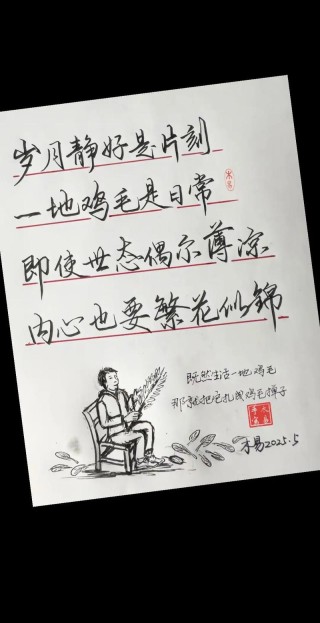 岁月静好是片刻
一地鸡毛是日常
即使世态偶尔薄凉
内心也要繁花似锦
既然生活一地鸡毛
那就把它扎成鸡毛掸子
木易2025.5
木易